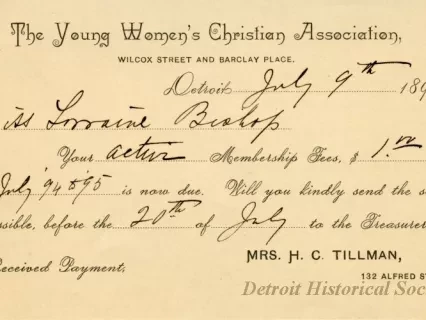 The Young Women's Christian Association,
WILCOX STREET AND BARCLAY PLACE.
Detroit July 9th 189
iss Lorraine Bishop
Your active Membership Fees, $ 1.00
July '94 & '95 is now due. Will you kindly send the s
ssible, before the 20th of July to the Treasurer
MRS. H. C. TILLMAN,
eceived Payment,
132 ALFRED S
Detroit Historical Soc